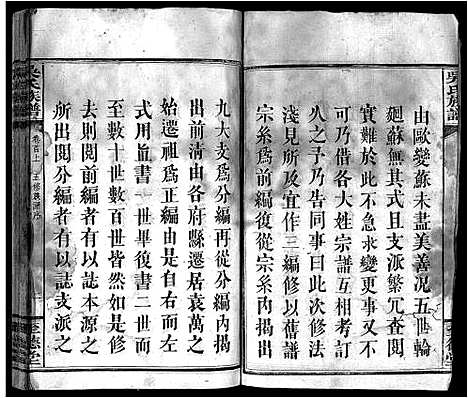 吳氏族譜
由歐變蘇未盡美善況五世輪
廻蘇無其式且支派繁冗查閱
不便不急求變更事又不
可行於各大姓宗譜互相
久之予乃告同事曰此次修法
淺見所及宜作三編修以歐
宗系為前編復從宗系內揭
九大支為分編再從分編內揭
出前清由各府縣遷居袁萬之
始遷祖為正編自後書法
式用直書一世畢復書二世
至數十世數百世皆然如是修
去閱前編者有以誌本源之
所出閱分編者有以誌支派之
吳氏族譜
卷首上
五修族譜序
至德堂
至德堂